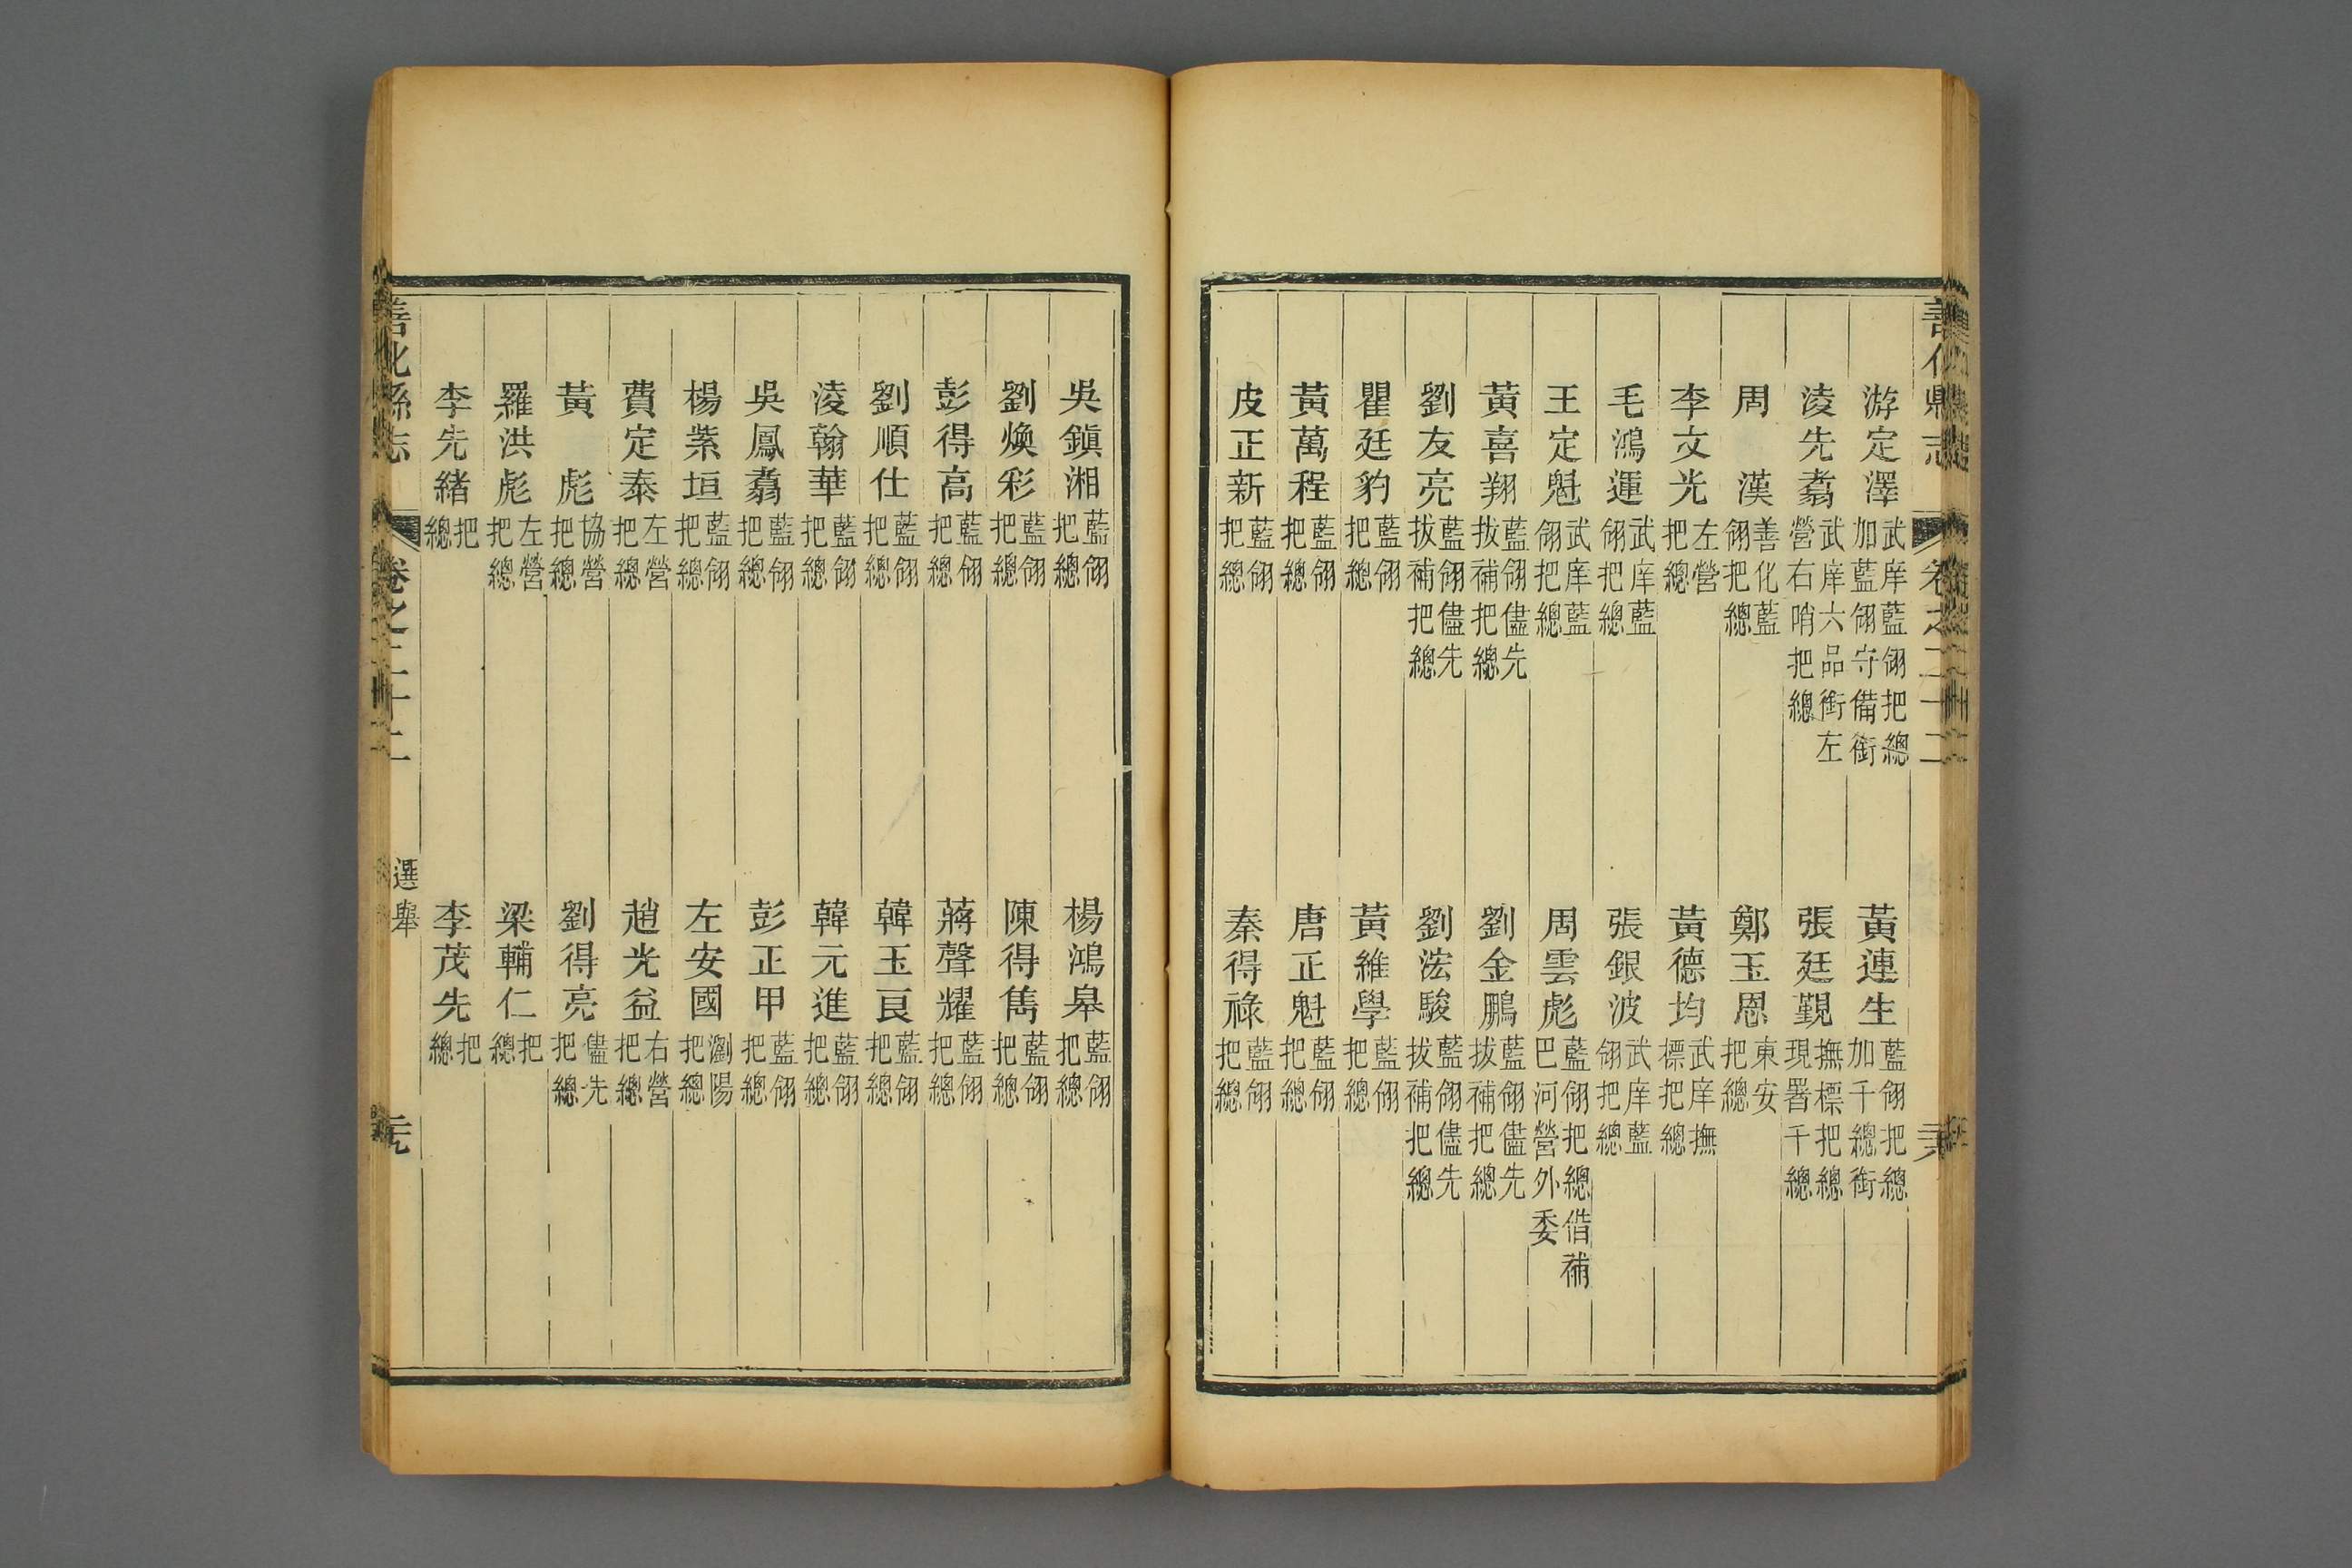 善化縣志 卷之二十二
游定澤 武庠藍翎把總加藍翎守備銜
黃連生 藍翎把總加千總銜
淩先翥 武庠六品銜左營右哨把總
張廷覲 撫標把總現署千總
周漢 善化藍翎把總
鄭玉恩 東安把總
李文光 左營把總
黃德均 武庠撫標把總
毛鴻運 武庠藍翎把總
張銀波 武庠藍翎把總
王定魁 武庠藍翎把總
周雲彪 藍翎把總借補巴河營外委
黃喜翔 藍翎儘先拔補把總
劉金鵬 藍翎儘先拔補把總
劉友亮 藍翎儘先拔補把總
劉浤駿 藍翎儘先拔補把總
瞿廷豹 藍翎把總
黃維學 藍翎把總
黃萬程 藍翎把總
唐正魁 藍翎把總
皮正新 藍翎把總
秦得祿 藍翎把總
吳鎭湘 藍翎把總
楊鴻皋 藍翎把總
劉煥彩 藍翎把總
陳得雋 藍翎把總
彭得高 藍翎把總
蔣聲耀 藍翎把總
劉順仕 藍翎把總
韓玉良 藍翎把總
淩翰華 藍翎把總
韓元進 藍翎把總
吳鳳翥 藍翎把總
彭正甲 藍翎把總
楊紫垣 藍翎把總
左安國 瀏陽把總
費定泰 左營把總
趙光益 右營把總
黃彪 協營把總
劉得亮 儘先把總
羅洪彪 左營把總
梁輔仁 把總
李先緒 把總
李茂先 把總
善化縣志 卷之二十二 選舉